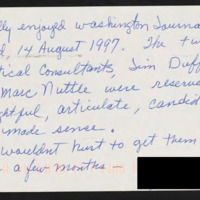 lly enjoyed Washington Journal
d, 14 August 1997. The tw
ical Consultants, Jim Duff
Marc Nuttle were reserv
ghtful, articulate, candid
made sense.
wouldn't hurt to get them
a few months —